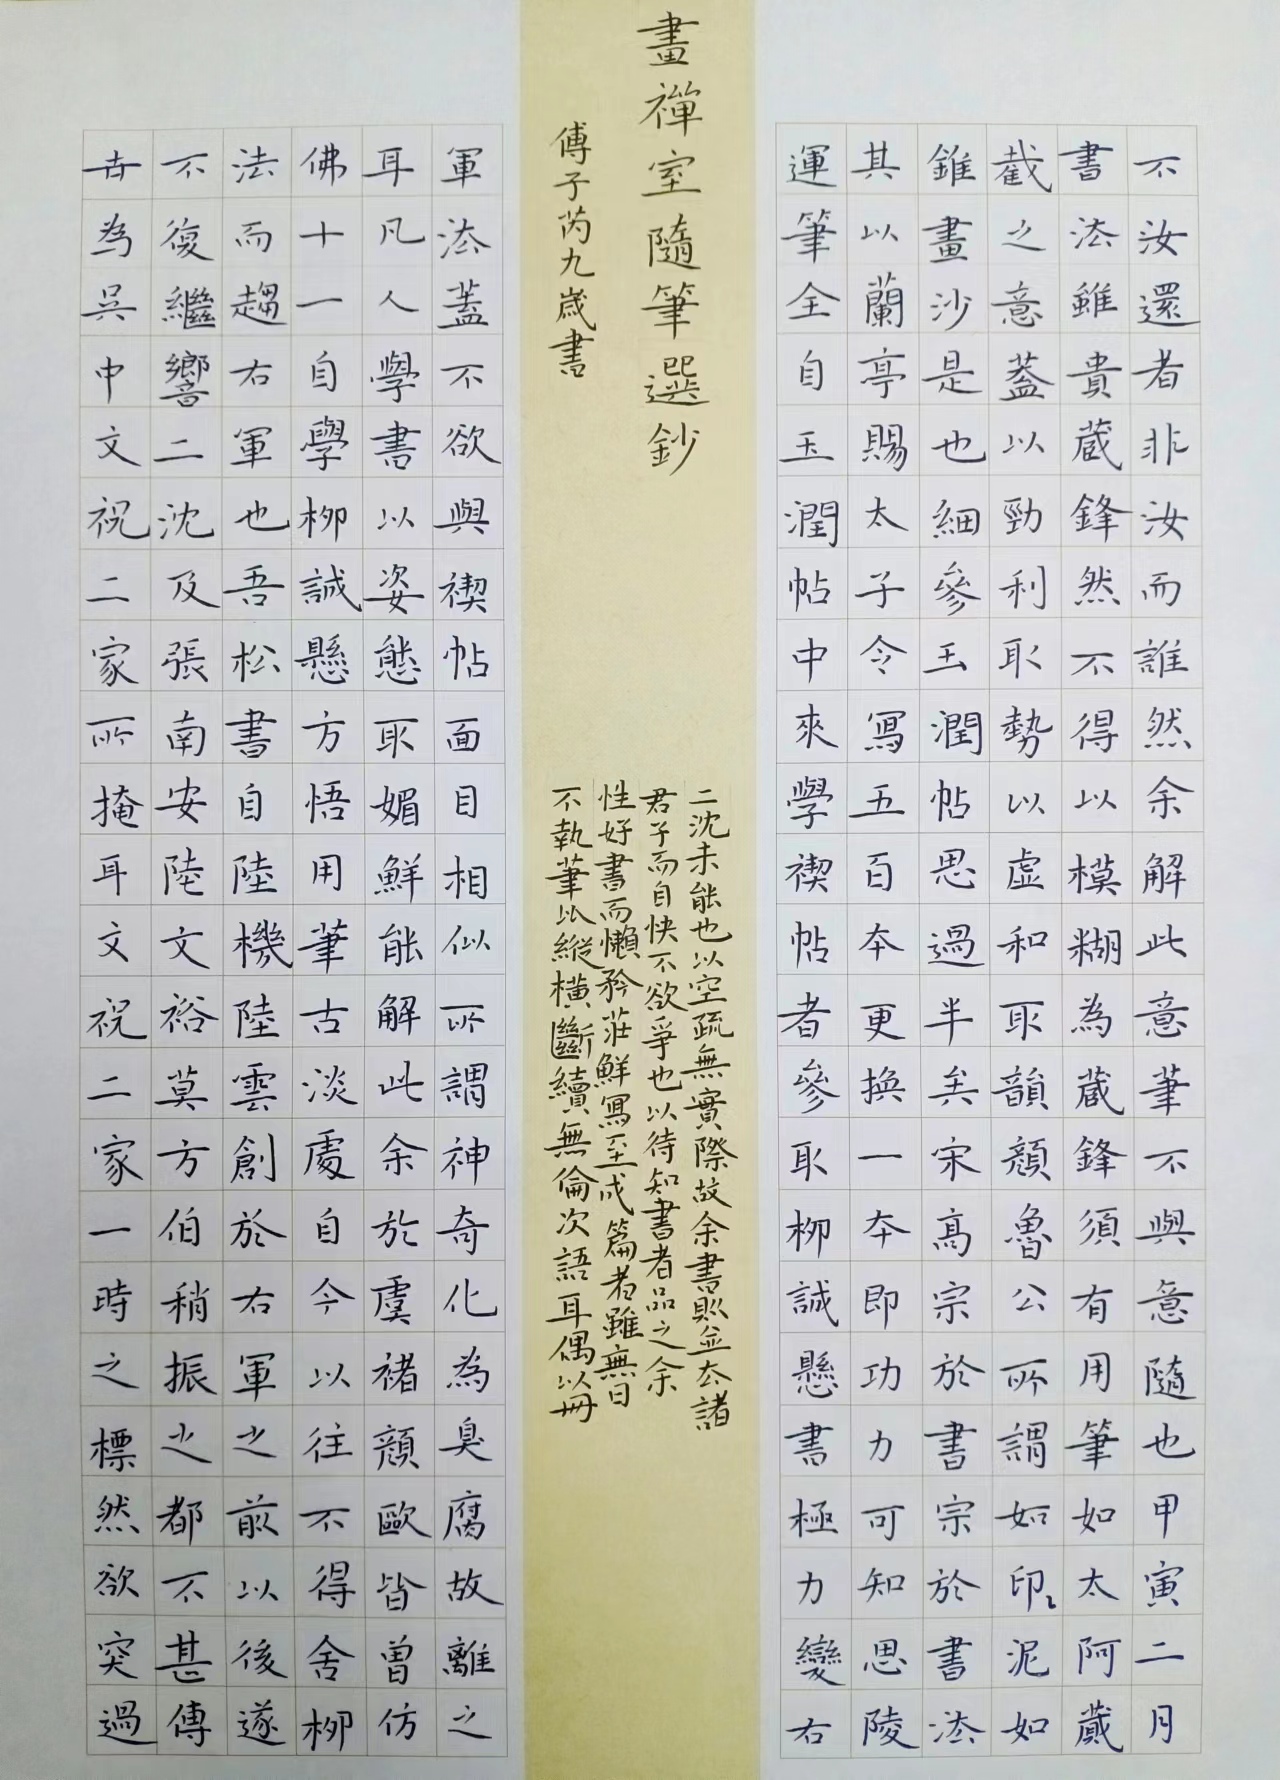 畫禪室隨筆選鈔
傅子芮九歲書
不汝還者非汝而誰然余解此意筆不與意隨也甲寅二月
書法雖貴藏鋒然不得以模糊為藏鋒須有用筆如太阿蕆
截之意蓋以勁利取勢以虛和取韻顏魯公所謂如印〻泥如
錐畫沙是也細參玉潤帖思過半矣宋高宗於書宗於書法
其以蘭亭賜太子令寫五百本更換一本即功力可知思陵
運筆全自玉潤帖中來學禊帖者參取柳誠懸書極力變右
軍法蓋不欲與禊帖面目相似所謂神奇化為臭腐故離之
耳凡人學書以姿態取媚鮮能解此余於虞褚顏歐皆曾仿
佛十一自學柳誠懸方悟用筆古淡處自今以往不得舍柳
法而趨右軍也吾松書自陸機陸雲創於右軍之前以後遂
不復繼響二沈及張南安陸文裕莫方伯稍振之都不甚傳
世為吳中文祝二家所掩耳文祝二家一時之標然欲突過
二沈未能也以空疏無實際故余書則並去諸
君子而自快不欲爭也以待知書者品之余
性好書而懶矜莊鮮寫至成篇者雖無日
不執筆以縱橫斷續無倫次語耳偶以冊